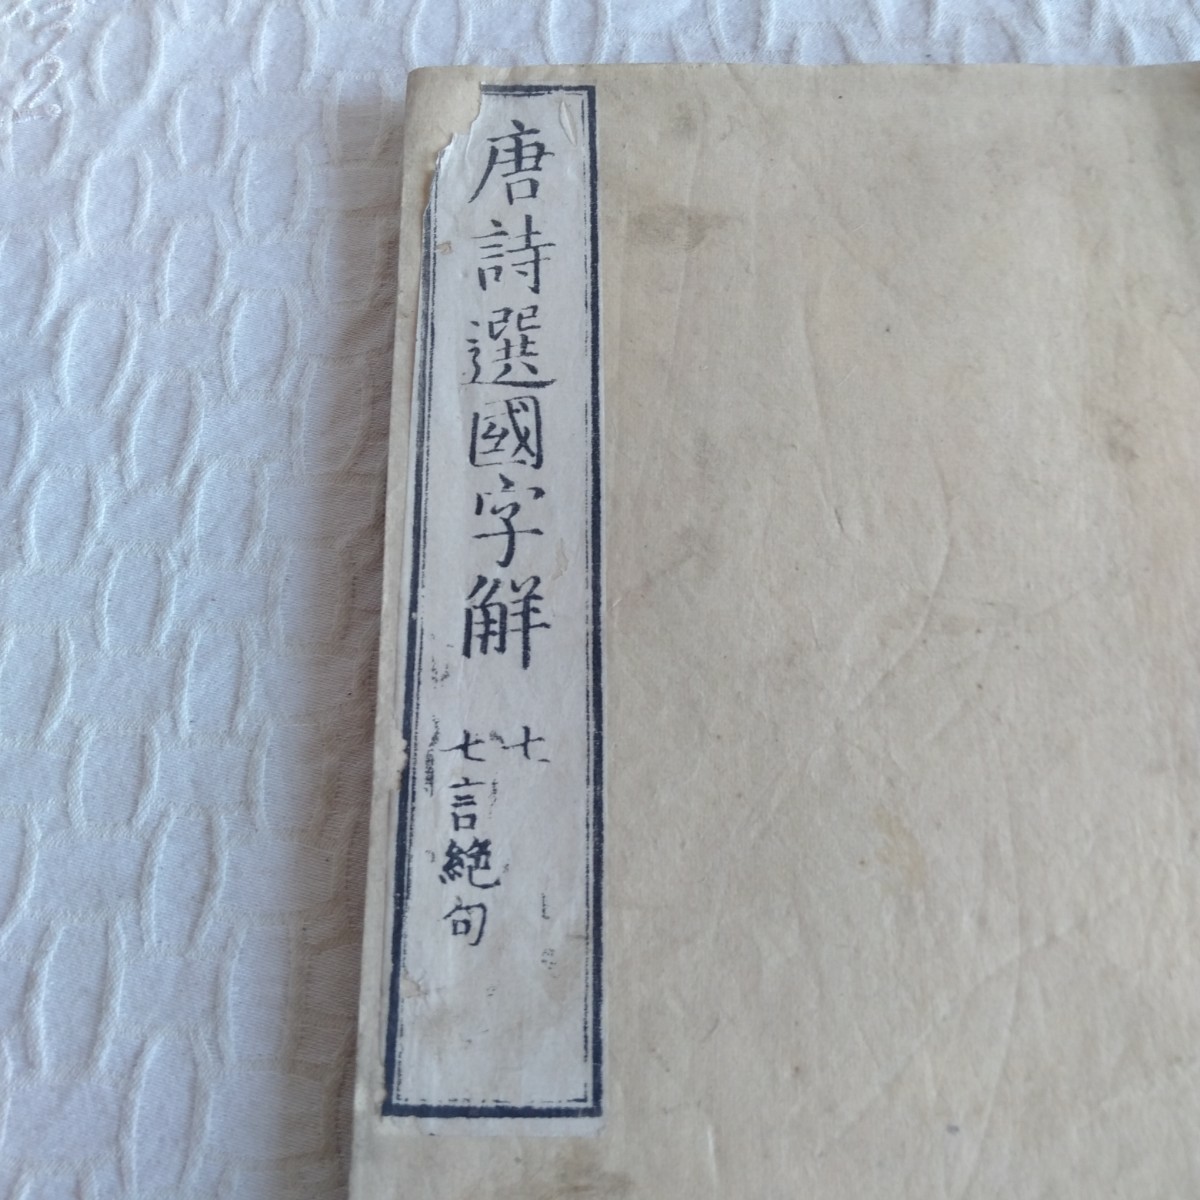 唐詩選國字解
七
七言絶句